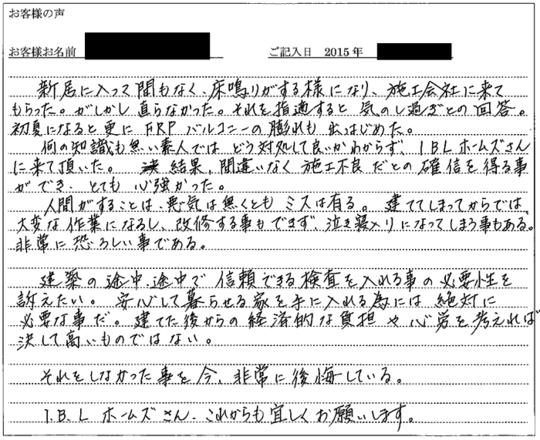 お客様の声
お客様お名前 ご記入日 2015年
新居に入って間もなく、床鳴りがする様になり、施工会社に来て
もらった。がしかし直らなかった。それを指適すると気のし過ぎとの回答。
初夏になると更にFRPバルコニーの膨れも出はじめた。
何の知識も無い素人では、どう対処して良いかわからず、I.B.Lホームズさん
に来て頂いた。結果、間違いなく施工不良だとの確信を得る事
ができ、とても心強かった。
人間がすることは、悪気は無くともミスは有る。建ててしまってからでは、
大変な作業になるし、改修する事もできず、泣き寝入りになってしまう事もある。
非常に恐ろしい事である。
建築の途中、途中で信頼できる検査を入れる事の必要性を
訴えたい。安心して暮らせる家を手に入れる為には絶対に
必要な事だ。建てた後からの経済的な負担や心労を考えれば
決して高いものではない。
それをしなかった事を今、非常に後悔している。
I.B.Lホームズさん、これからも宜しくお願いします。